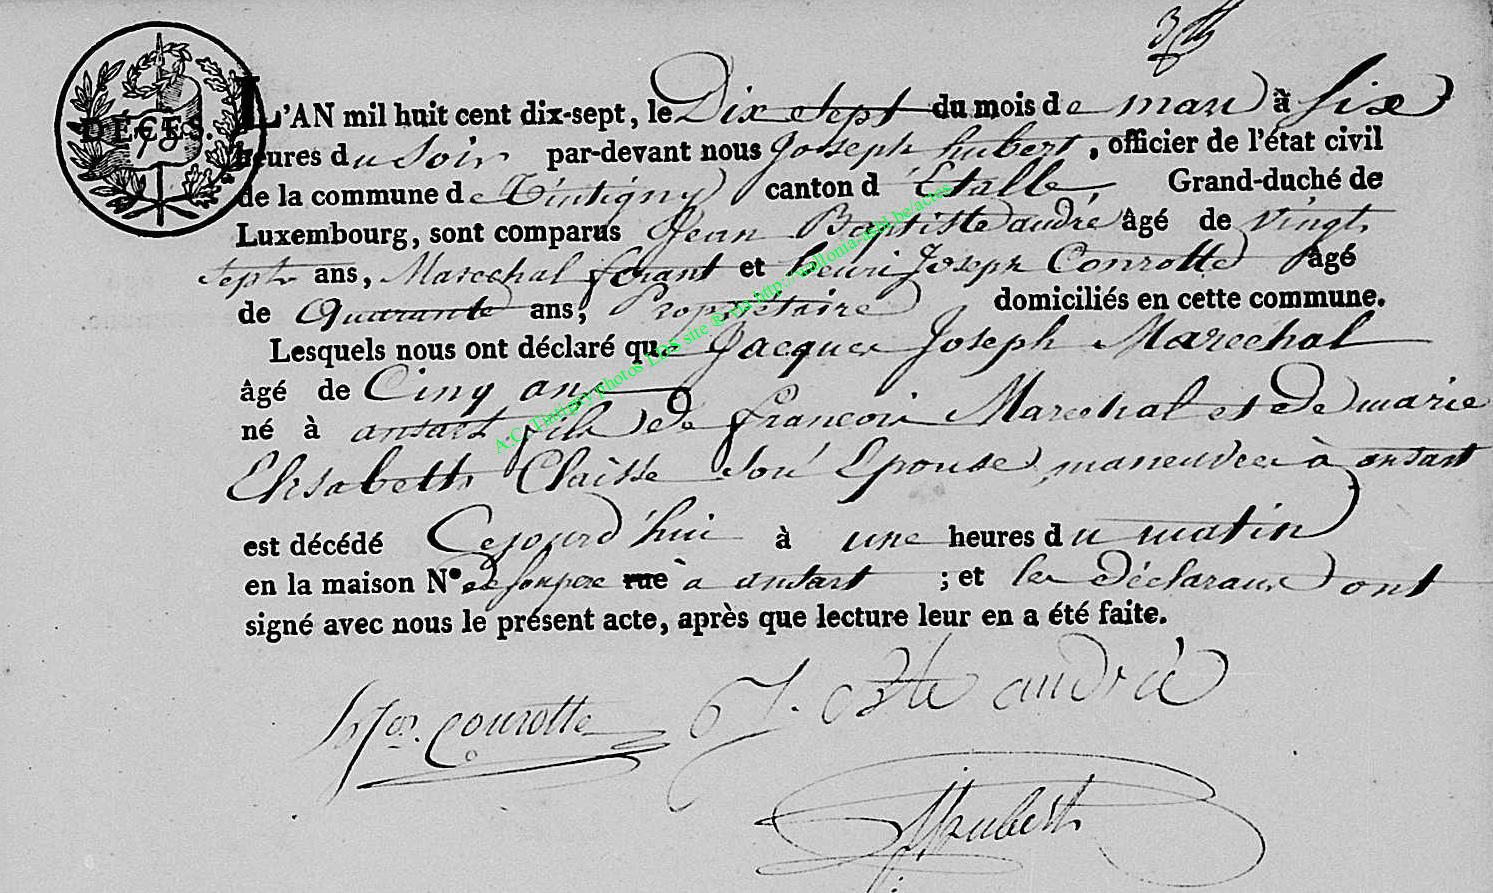 DÉCES.
L'AN mil huit cent dix-sept, le Dix Sept du mois de mars à Six
heures du Soir par-devant nous Joseph hubert, officier de l'état civil
de la commune de Tintigny canton d'Etalle, Grand-duché de
Luxembourg, sont comparus Jean Baptiste andré âgé de vingt
sept ans, Marechal ferant et henri Joseph Conrotte âgé
de Quarante ans, Propriétaire domiciliés en cette commune.
Lesquels nous ont déclaré que Jacques Joseph Marechal
âgé de Cinq ans
né à ansart fils de francois Marechal et de marie
Elisabeth Claisse son Epouse, maneuvres à ansart
est décédé Cejourd'hui à une heures du matin
en la maison N° de son pere rue à ansart ; et les Déclarans ont
signé avec nous le présent acte, après que lecture leur en a été faite.
h jos. Conrotte J. bte andré
hubert
A.C. Tintigny photos LDS site @ via http://wallonia-asbl.be/actes